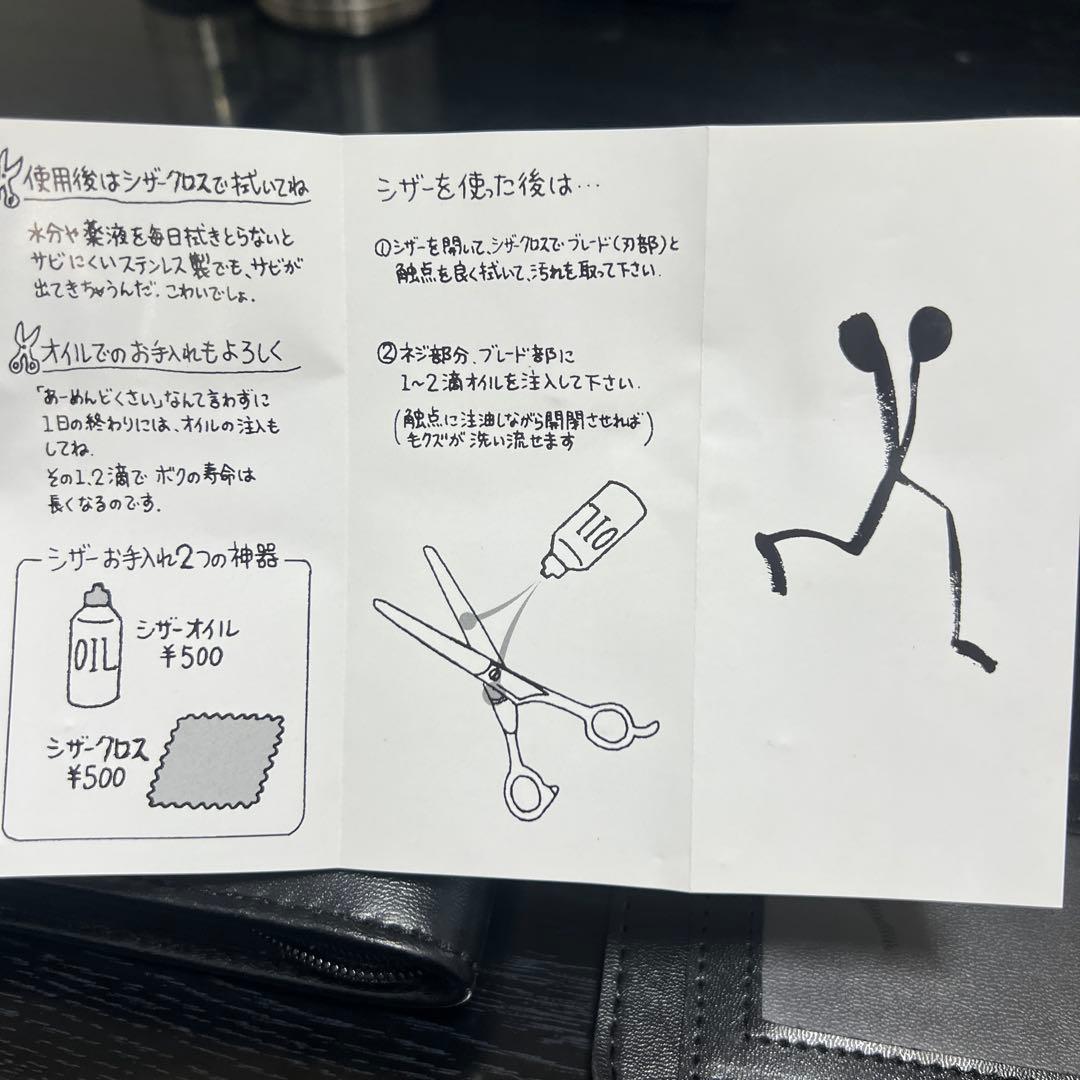 使用後はシザークロスで拭いてね
水分や薬液を毎日拭きとらないと
サビにくいステンレス製でも、サビが
出てきちゃうんだ。こわいでしょ。
オイルでのお手入れもよろしく
「あーめんどくさい」なんて言わずに
1日の終わりには、オイルの注入も
してね.
その1、2滴で ボクの寿命は
長くなるのです.
シザーお手入れ2つの神器
OIL
シザーオイル
¥500
シザークロス
¥500
シザーを使った後は…
①シザーを開いて、シザークロスでブレード(刃部)と
触点を良く拭いて、汚れを取って下さい.
②ネジ部分、ブレード部に
1〜2滴オイルを注入して下さい.
(触点に注油しながら開閉させれば
毛クズが洗い流せます)
OIL